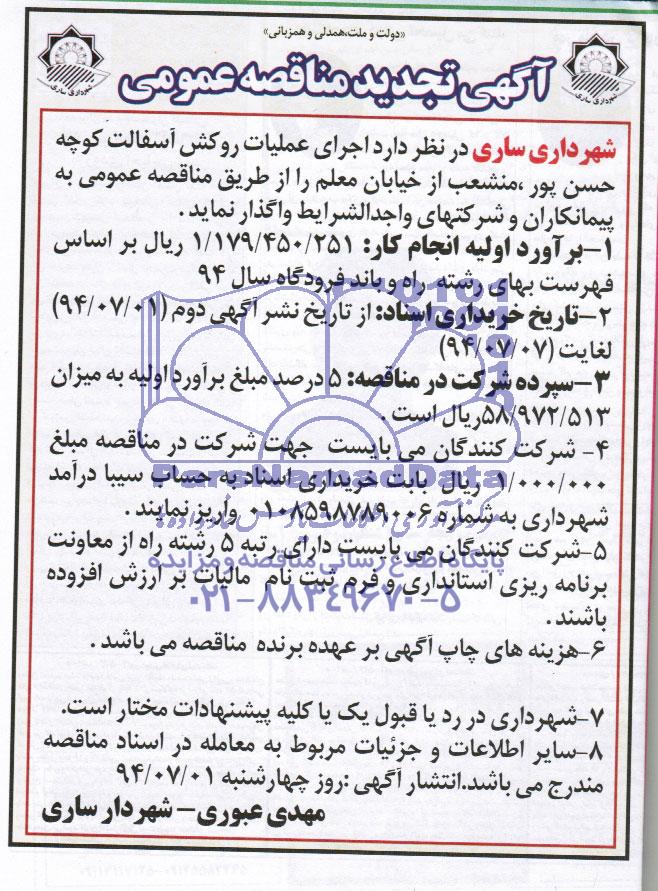 «دولت و ملت،همدلی و همزبانی»
آگهی تجدید مناقصه عمومی
شهرداری ساری
شهرداری ساری
شهرداری ساری در نظر دارد اجرای عملیات روکش آسفالت کوچه
حسن پور ،منشعب از خیابان معلم را از طریق مناقصه عمومی به
پیمانکاران و شرکتهای واجدالشرایط واگذار نماید .
۱-برآورد اولیه انجام کار: ۱/۱۷۹/۴۵۰/۲۵۱ ریال بر اساس
فهرست بهای رشته راه و باند فرودگاه سال ۹۴
۲-تاریخ خریداری اسناد: از تاریخ نشر آگهی دوم (۹۴/۰۷/۰۱)
لغایت (۹۴/۰۷/۰۷)
۳-سپرده شرکت در مناقصه: ۵ درصد مبلغ برآورد اولیه به میزان
۵۸/۹۷۲/۵۱۳ریال است .
۴- شرکت کنندگان می بایست جهت شرکت در مناقصه مبلغ
۱/۰۰۰/۰۰۰ ریال بابت خریداری اسناد به حساب سیبا درآمد
شهرداری به شماره ۰۱۰۸۵۹۸۷۸۹۰۰۶ واریز نمایند .
۵-شرکت کنندگان می بایست دارای رتبه ۵ رشته راه از معاونت
برنامه ریزی استانداری و فرم ثبت نام مالیات بر ارزش افزوده
باشند .
۶-هزینه های چاپ آگهی بر عهده برنده مناقصه می باشد .
۷-شهرداری در رد یا قبول یک یا کلیه پیشنهادات مختار است.
۸-سایر اطلاعات و جزئیات مربوط به معامله در اسناد مناقصه
مندرج می باشد.انتشار آگهی :روز چهارشنبه ۹۴/۰۷/۰۱
مهدی عبوری- شهردار ساری
ParsNamadData
پایگاه اطلاع رسانی مناقصه و مزایده
۰۲۱-۸۸۳۴۹۶۷۰-۵